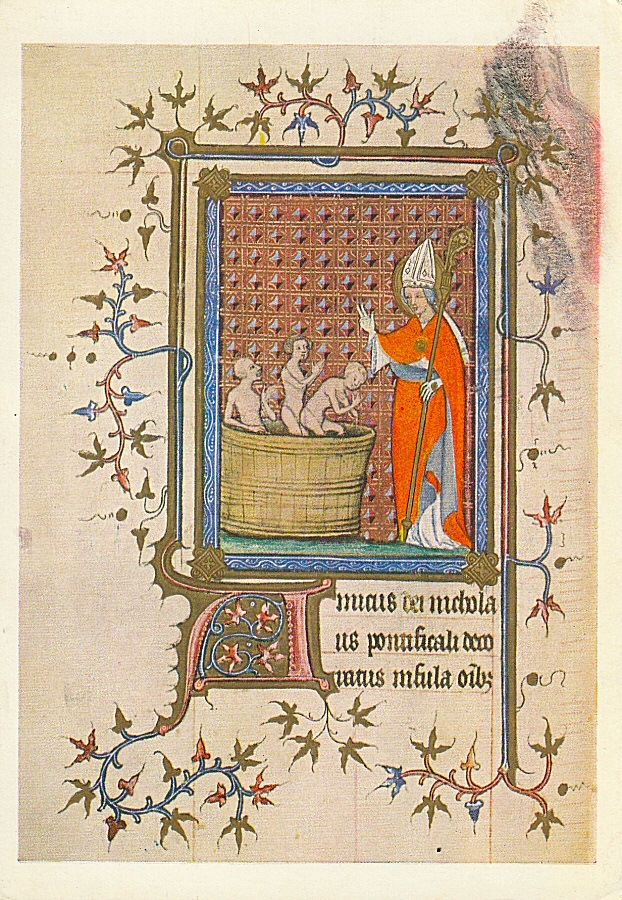 Amicus dei nichola
us pontificali deco
ratus infula oībꝫ